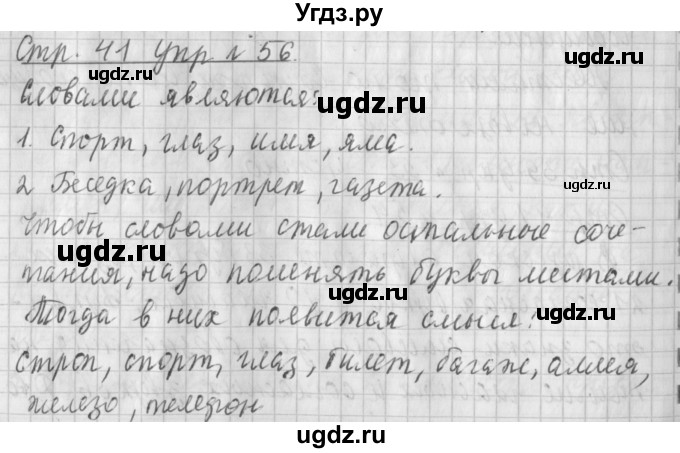 Угдз.ру
Стр. 41 упр № 56.
Словами являются:
1. Спорт, глаз, имя, яма.
2 Беседка, портрет, газета.
Чтобы словами стали остальные соче-
тания, надо поменять буквы местами.
Тогда в них появится смысл:
строп, спорт, глаз, билет, багаж, аллея,
железо, телефон
ugdz.ru
ugdz.ru
ugdz.ru
ugdz.ru
ugdz.ru
ugdz.ru
ugdz.ru
ugdz.ru
ugdz.ru
ugdz.ru
ugdz.ru
ugdz.ru
ugdz.ru